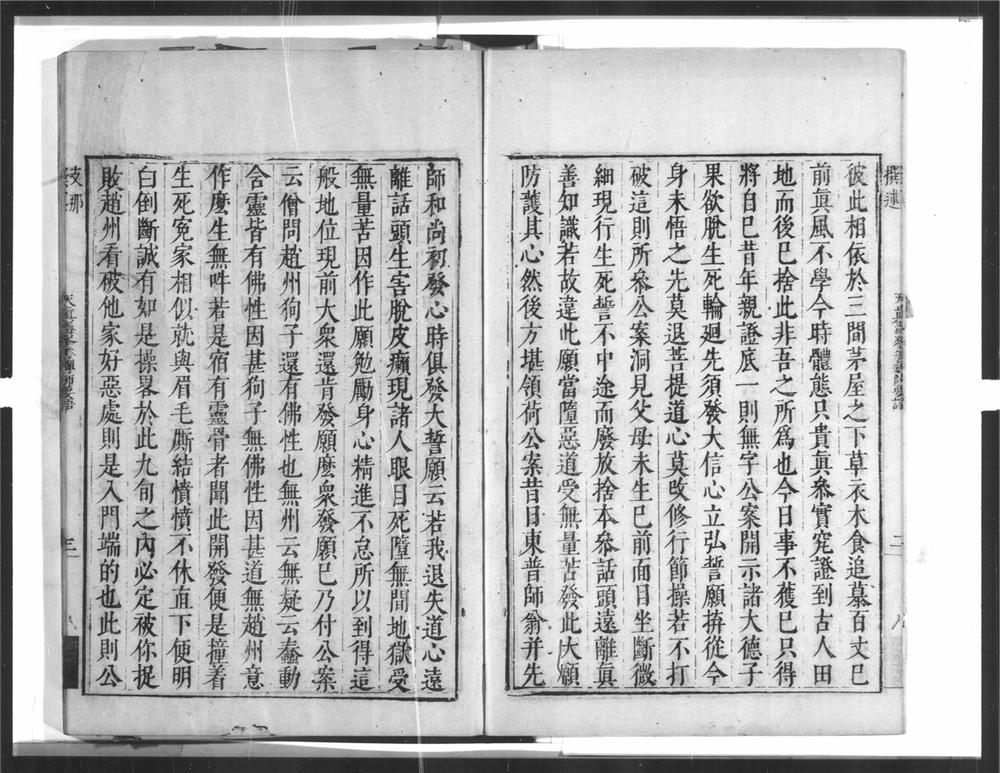 彼此相依於三間茅屋之下草衣木食追慕百丈巳
前眞風不學今時體態只貴眞叅實究證到古人田
地而後巳捨此非吾之所爲也今日事不獲巳只得
將自巳昔年親證底一則無字公案開示諸大德子
果欲脫生死輪廻先須發大信心立弘誓願拚從今
身未悟之先莫退菩提道心莫改修行節操若不打
破這則所叅公案洞見父母未生巳前面目坐斷微
細現行生死誓不中途而廢放捨本叅話頭遠離眞
善知識若故違此願當墮惡道受無量苦發此大願
防護其心然後方堪領荷公案昔日東普師翁并先
師和尚初發心時俱發大誓願云若我退失道心遠
離話頭生害脫皮癩現諸人眼目死墮無間地獄受
無量苦因作此願勉勵身心精進不怠所以到得這
般地位現前大衆還肯發願麽衆發願巳乃付公案
云僧問趙州狗子還有佛性也無州云無疑云蠢動
含靈皆有佛性因甚狗子無佛性因甚道無趙州意
作麽生無吽若是宿有靈骨者聞此開發便是撞着
生死冤家相似就與眉毛厮結憤憤不休直下便明
白倒斷誠有如是操畧於此九旬之內必定被你捉
敗趙州看破他家好惡處則是入門端的也此則公
支那
三